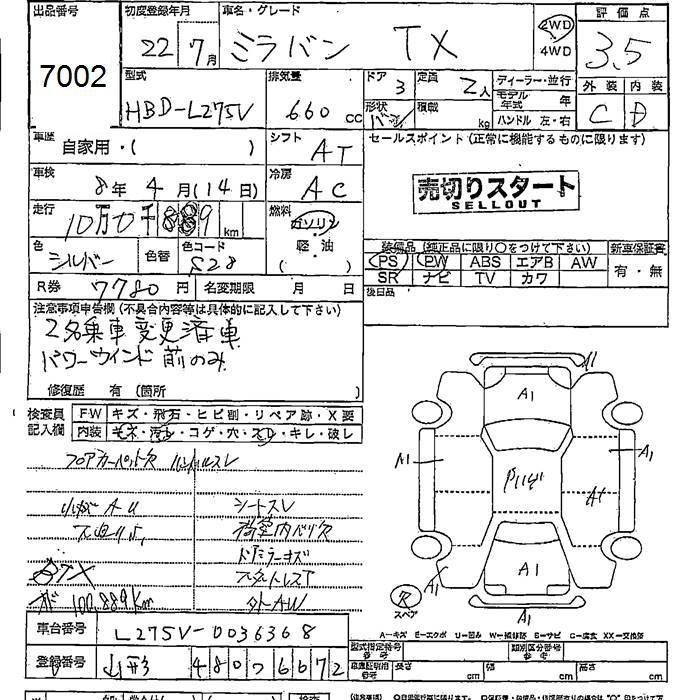 出品番号 7002
初度登録年月 22年 7月
車名・グレード ミラバン TX
2WD
4WD
評価点 3.5
外装 内装
C D
型式 HBD-L275V
排気量 660 cc
ドア 3
定員 2人
形状 バン
積載 kg
ディーラー・並行
モデル年式 年
ハンドル 左・右
車歴 自家用・( )
シフト AT
セールスポイント(正常に機能するものに限ります)
売切りスタート
SELLOUT
車検 8年 4月(14日)
冷房 AC
走行 10万0千889 km
燃料 ガソリン
軽・油
( )
色 シルバー
色替
色コード S28
装備品(純正品に限り○をつけて下さい)
PS PW ABS エアB AW
SR ナビ TV カワ
新車保証書
有・無
後日品
R券 7780円
名変期限 月 日
注意事項申告欄(不具合内容等は具体的に記入して下さい)
2名乗車変更済車
パワーウインド前のみ
修復歴 有(箇所 )
検査員記入欄
FW キズ・飛石・ヒビ割・リペア跡・X要
内装 コゲ・穴・キレ・破し
フロアカーペット欠 ハンドルスレ
シートスレ
荷室内ヘリ欠
ドアミラーキズ
100,889km
A1
A1
A1
A1
A1
A1
スペア
A-キズ E-エクボ U-凹み W-補修跡 S-サビ C-腐食 XX-交換済
車台番号 L275V-0036368
登録番号 480 つ 6672
型式指定番号
類別区分番号
長さ cm 幅 cm 高さ cm